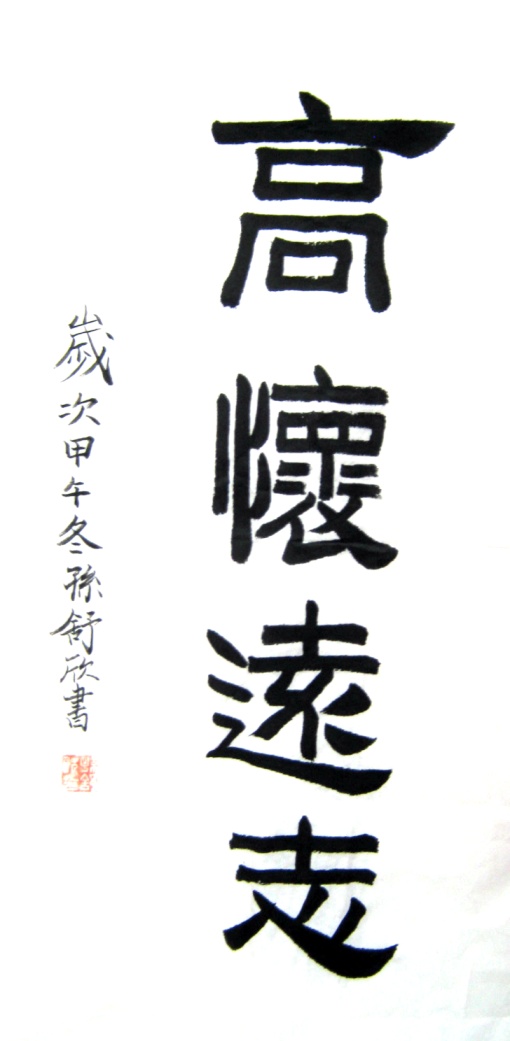 高懷遠志
歲次甲午冬孫舒欣書